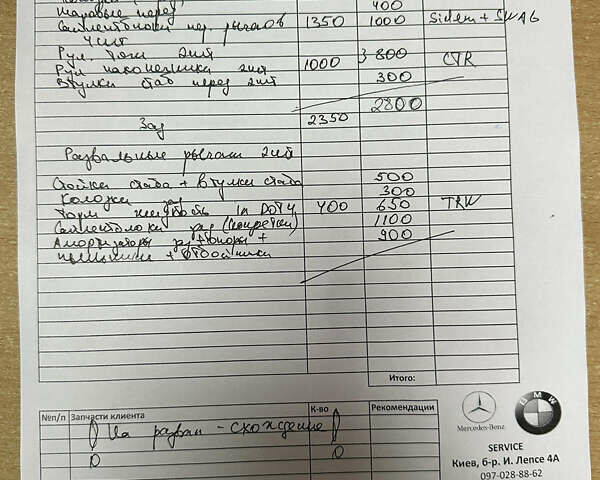 400
Шаровые перед
Сайлентблоки пер. рычагов 1350 1000 Sidem + SWAG
4 шт
Рул. тяги 2шт 800 CTR
Рул наконечники 2шт 1000
Втулки стаб перед 2шт 300
2800
Зад 2350
Развальные рычаги 2шт
Стойки стаба + Втулки стаба 500
Колодки зад 300
Торм жидкость 1л DOT4 400 650 TRW
Сайлентблоки зад 1100
Амортизаторы зад + опоры + 900
пыльники + отбойники
Итого:
№п/п Запчасти клиента К-во Рекомендации
На развал - схождение
Mercedes-Benz BMW
SERVICE
Киев, б-р. И. Лепсе 4А
097-028-88-62